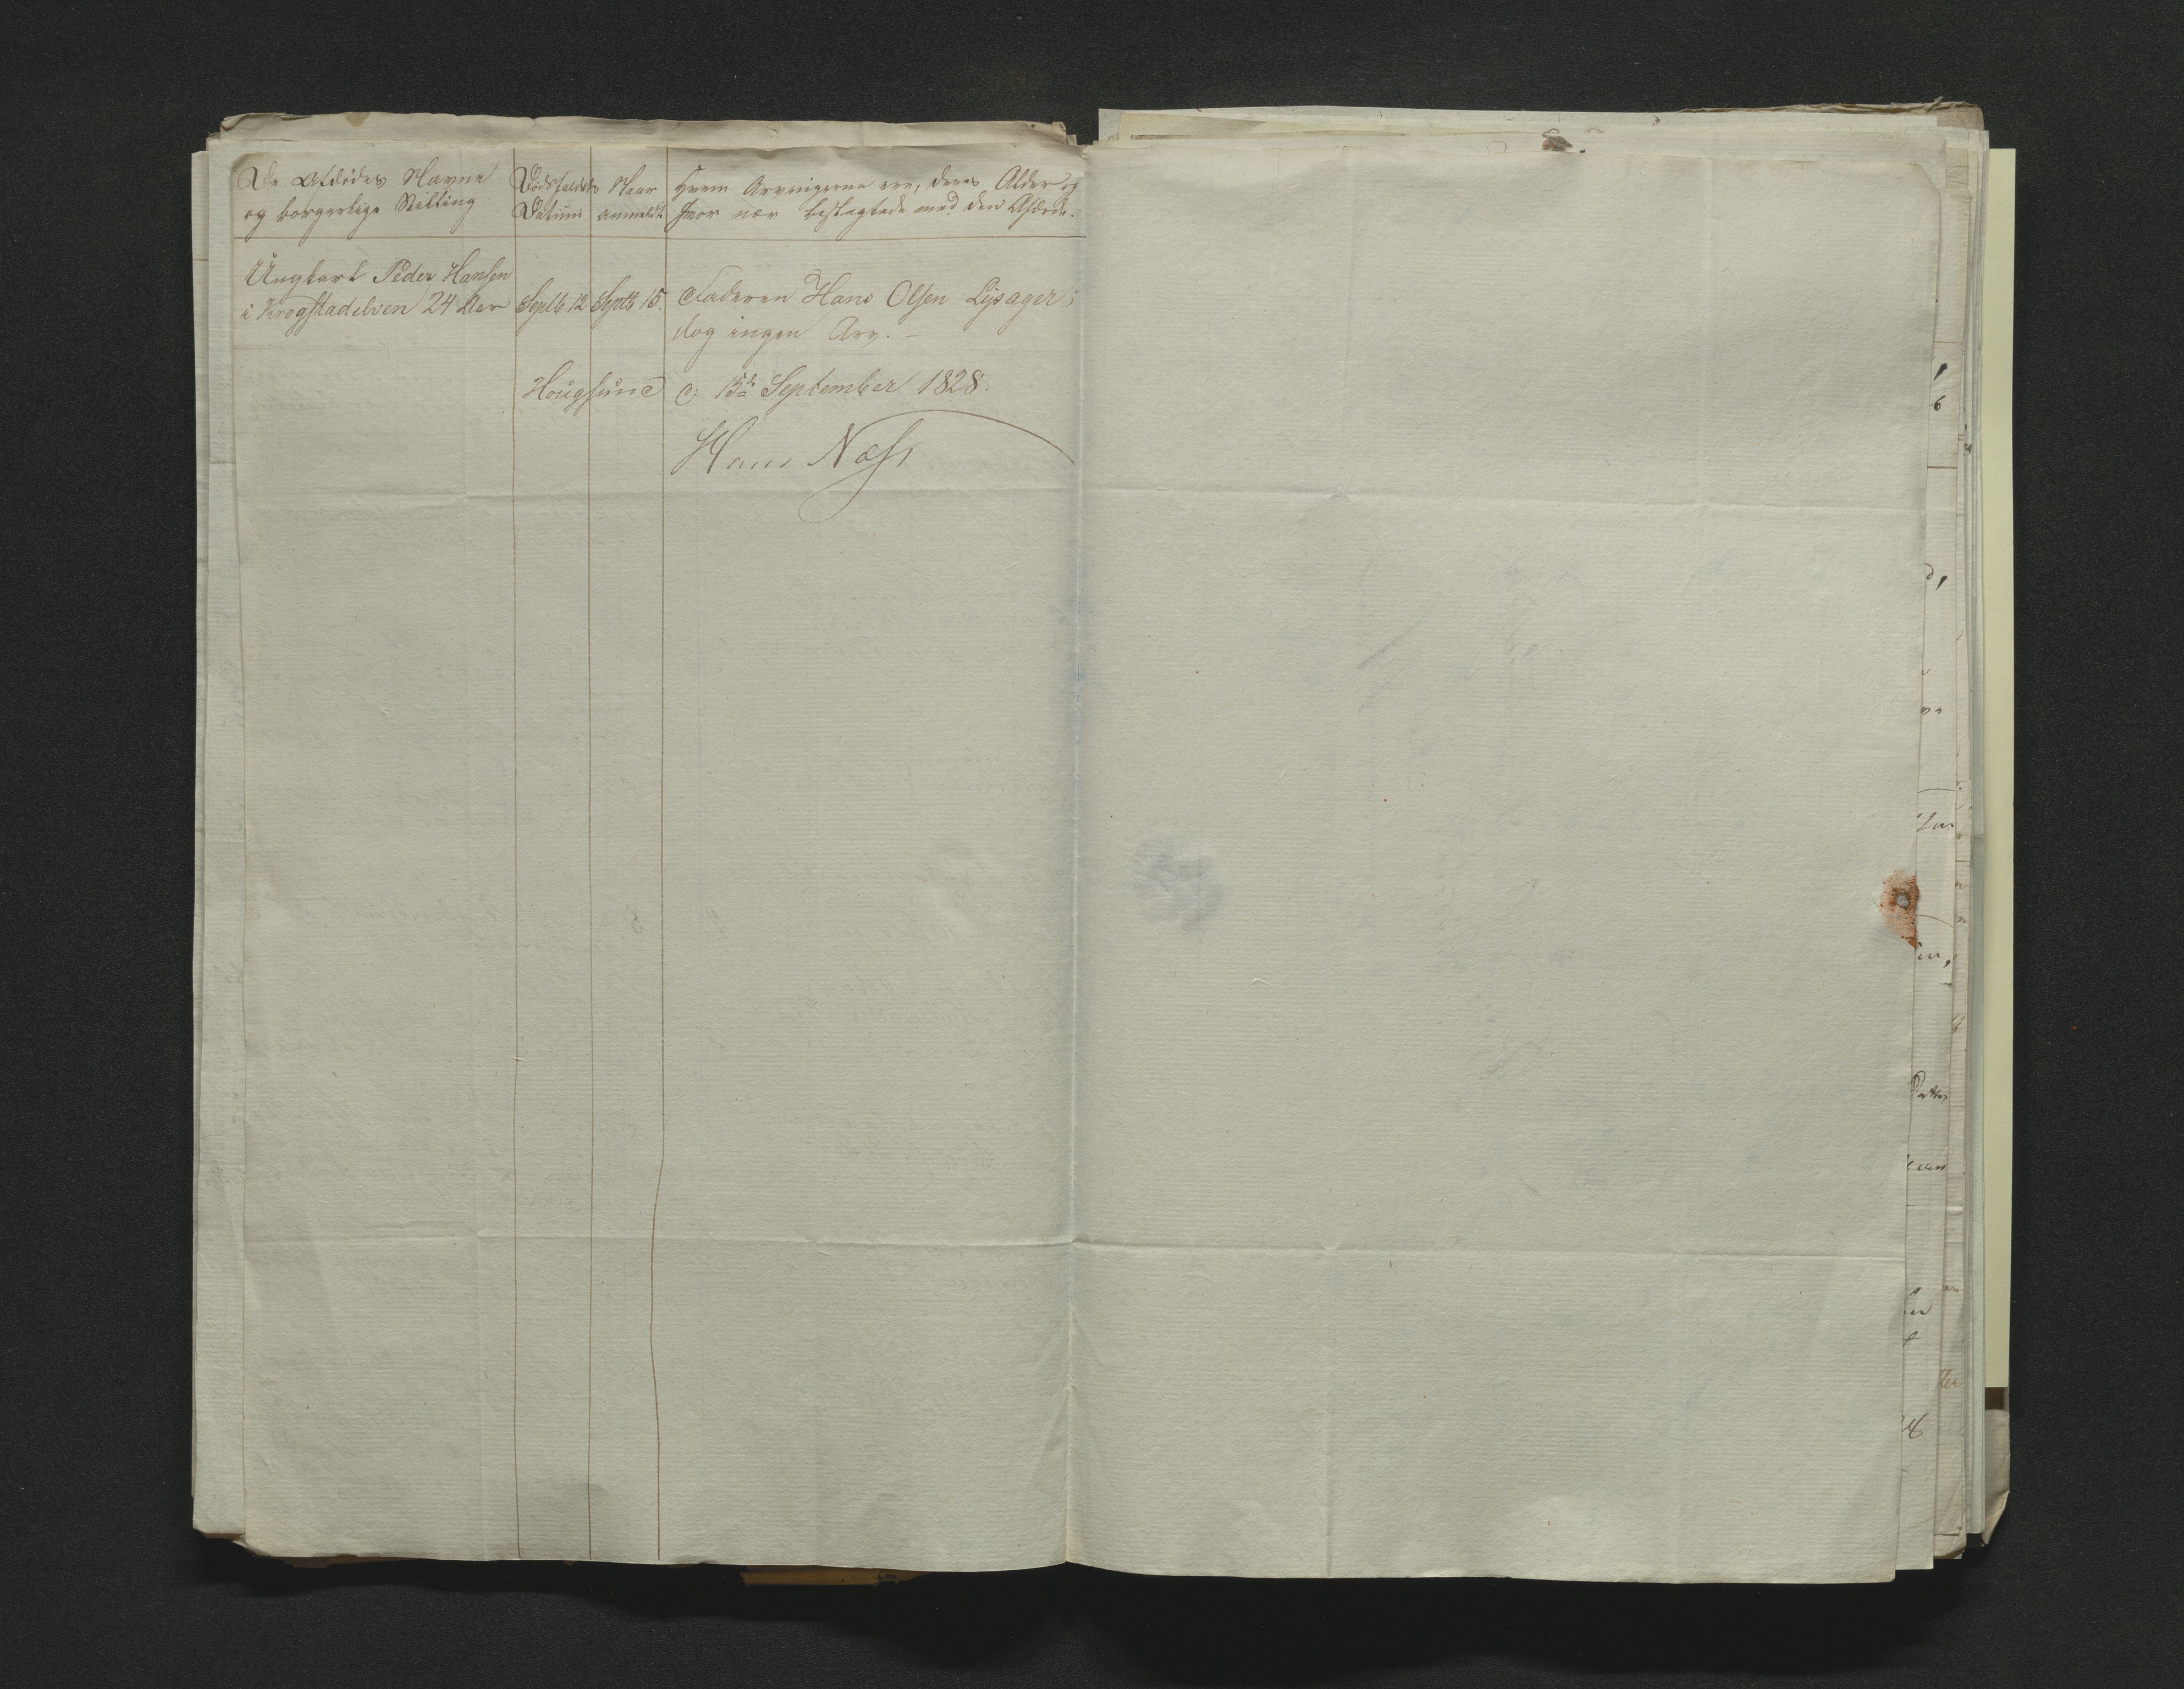 De Afdødes Navne
og borgerlige Stilling
Dødsfaldets
Datum
Naar
anmeldt
Hvem Arvingerne ere, deres Alder og
hvor nær beslægtede med den Afdøde.
Ungkarl Peder Hansen
i Krogstadelven 24 Aar
Septb 12
Septb 15.
Faderen Hans Olsen Lysager;
dog ingen Arv. –
Hougsund d: 15de September 1828.
Hans Næss